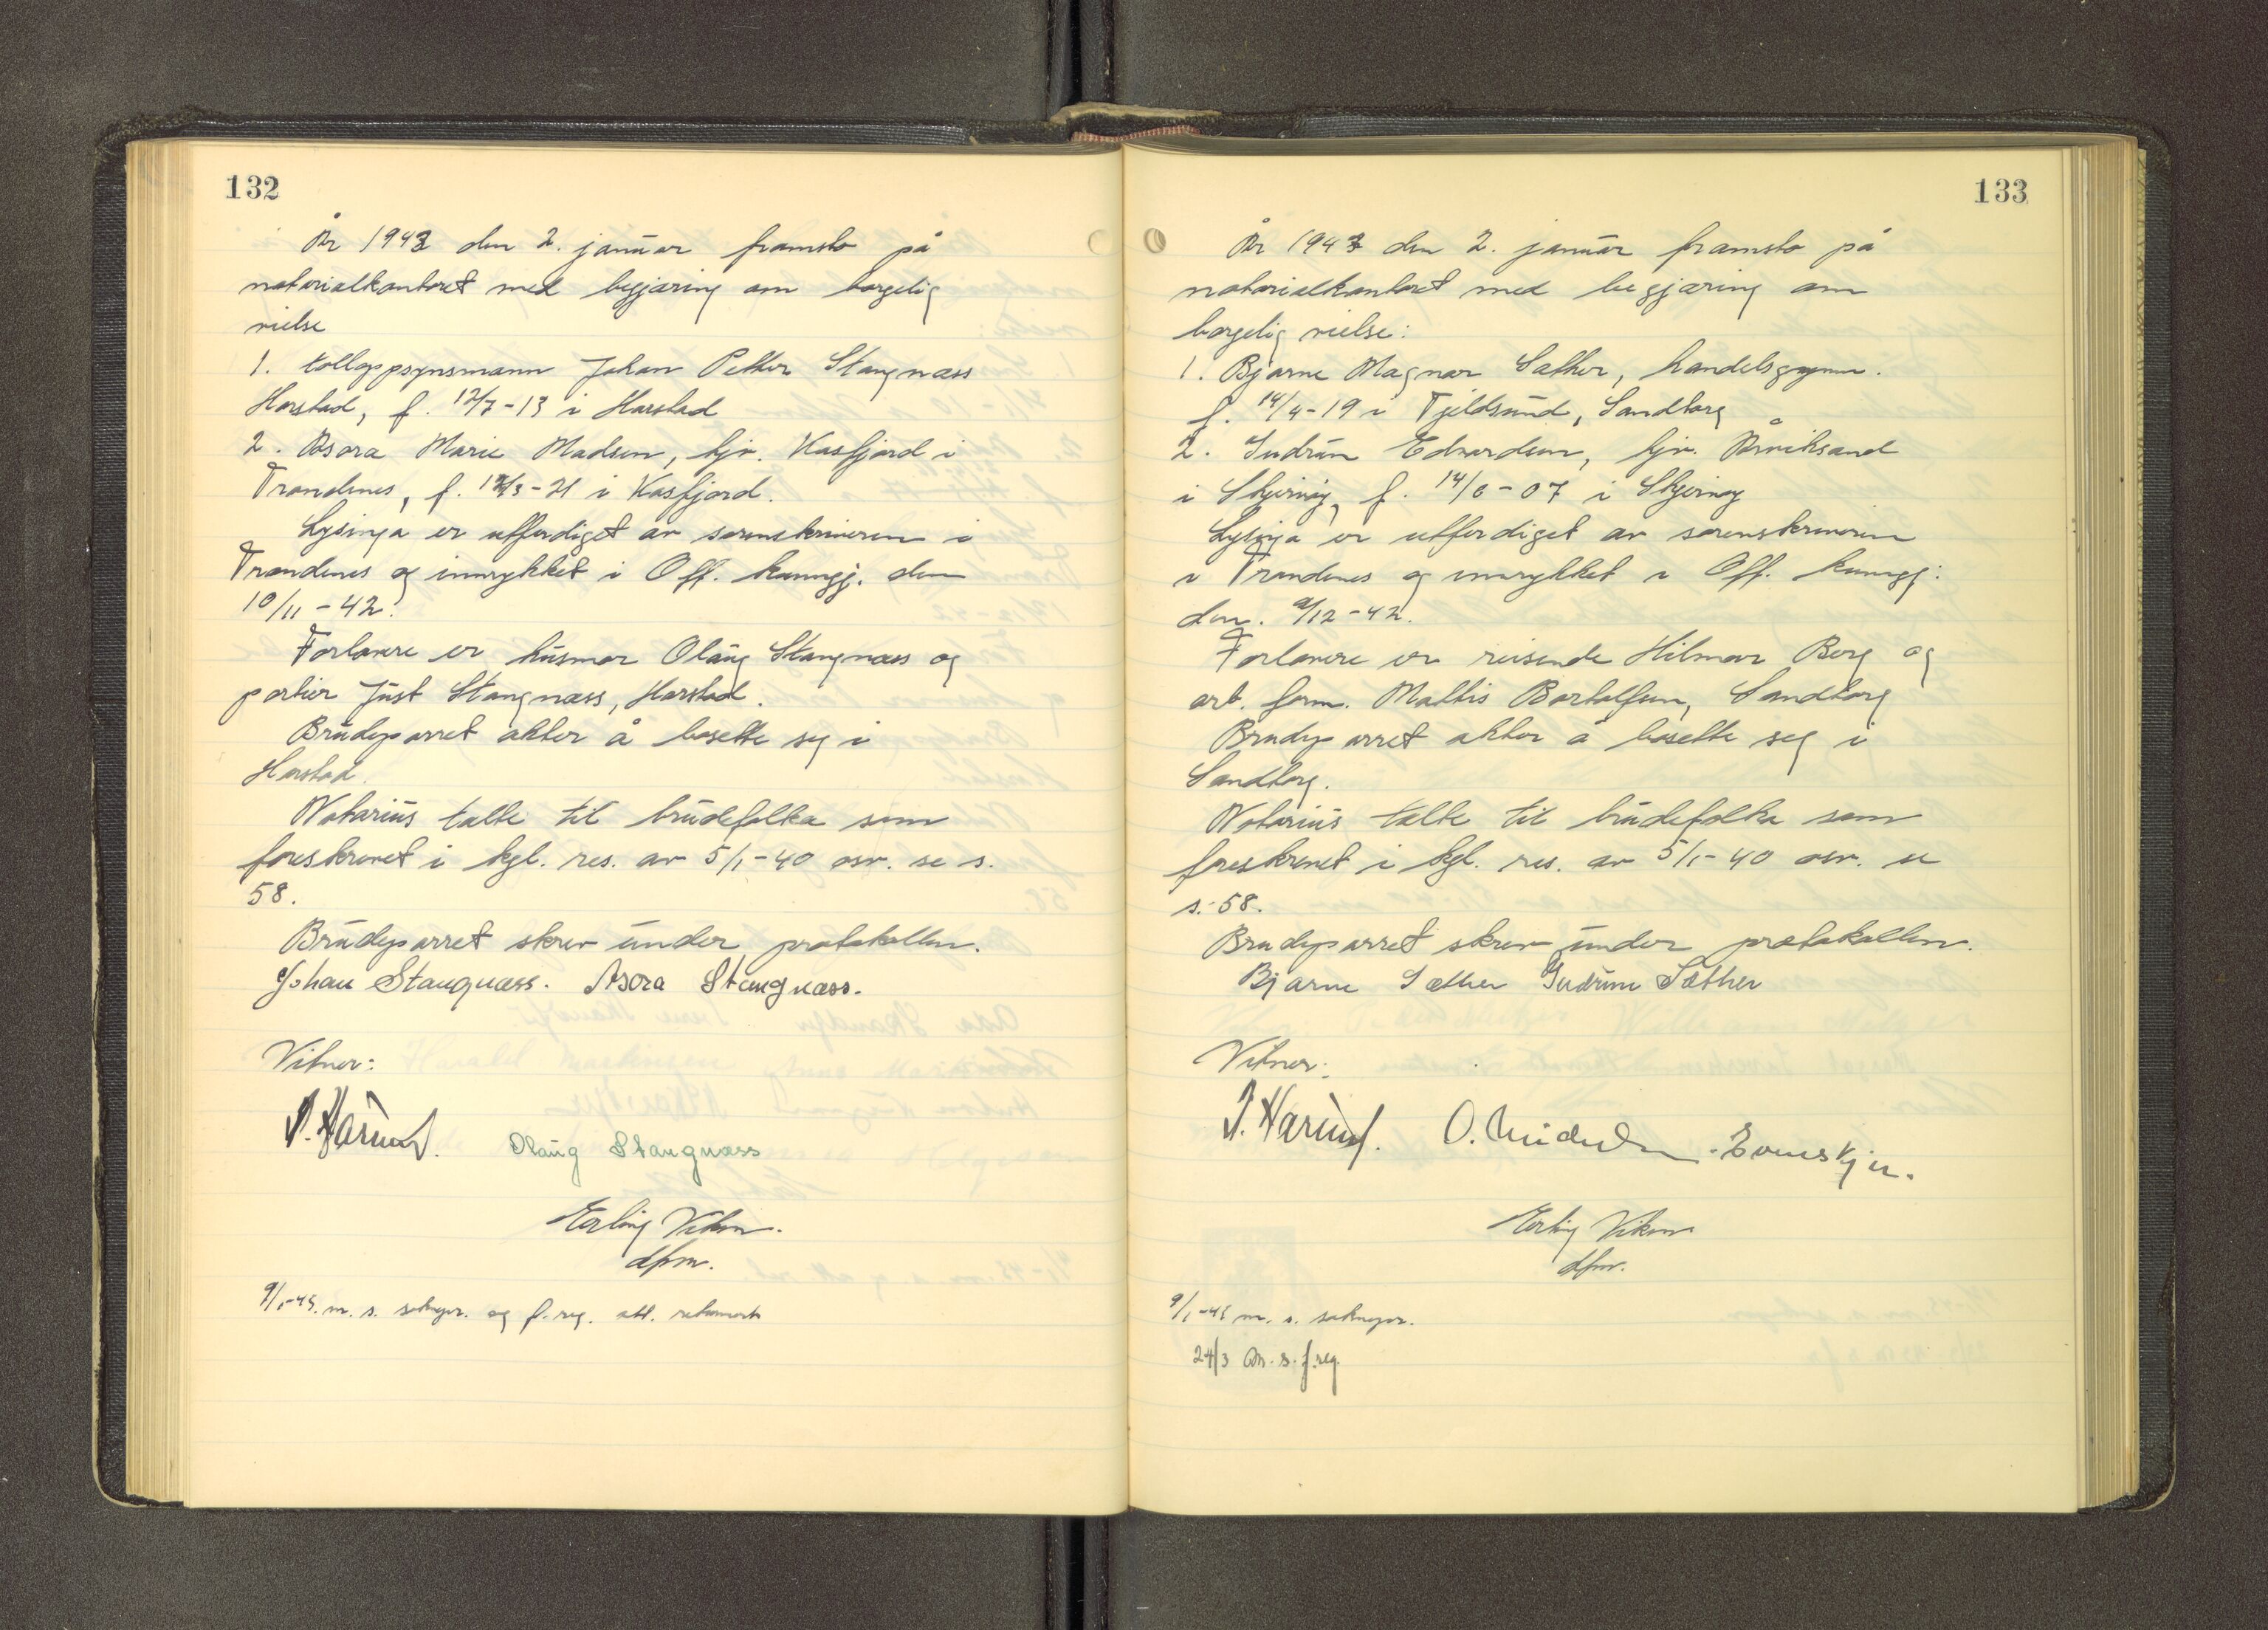 132
År 1943 den 2. januar framsto på
notarialkontoret med begjæring om borgelig
vielse
1. tolloppsynsmann Johan Petter Stangnæss
Harstad, f. 12/7-13 i Harstad
2. Asora Marie Madsen, hjv. Kasfjord i
Trondenes, f. 12/3-21 i Kasfjord.
Lysinga er utferdiget av sorenskriveren i
Trondenes og innrykket i Off. kunngj. den
10/11-42.
Forlovere er husmor Olaug Stangnæss og
portier Just Stangnæss, Harstad.
Brudeparret akter å bosette seg i
Harstad.
Notarius talte til brudefolka som
foreskrevet i kgl. res. av 5/1-40 osv. se s.
58.
Brudeparret skrev under protokollen.
Johan Stangnæss. Asora Stangnæss.
Vitner:
Olaug Stangnæss
Erling Viken.
dfm.
9/1-43. m. s. soknepr. og f.reg. att. returnert
133
År 1943 den 2. januar framsto på
notarialkontoret med begjæring om
borgelig vielse:
1. Bjarne Magnar Sæther, handelsgymn.
f. 14/4-19 i Tjeldsund, Sandtorg
2. Gudrun Edvardsen, hjv. Årviksand
i Skjervøy, f. 14/6-07 i Skjervøy
Lysinga er utferdiget av sorenskriveren
i Trondenes og innrykket i Off. kunngj.
den. 9/12-42.
Forlovere er reisende Hilmar Berg og
arb. form. Mattis Bertolfsen, Sandtorg
Brudeparret akter å bosette seg i
Sandtorg.
Notarius talte til brudefolka som
foreskrevet i kgl. res. av 5/1-40 osv. se
s. 58.
Brudeparret skrev under protokollen.
Bjarne Sæther Gudrun Sæther
Vitner:
Evenskjer.
Erling Viken
dfm.
9/1-43 m. s. soknepr.
24/3 m. s. f.reg.